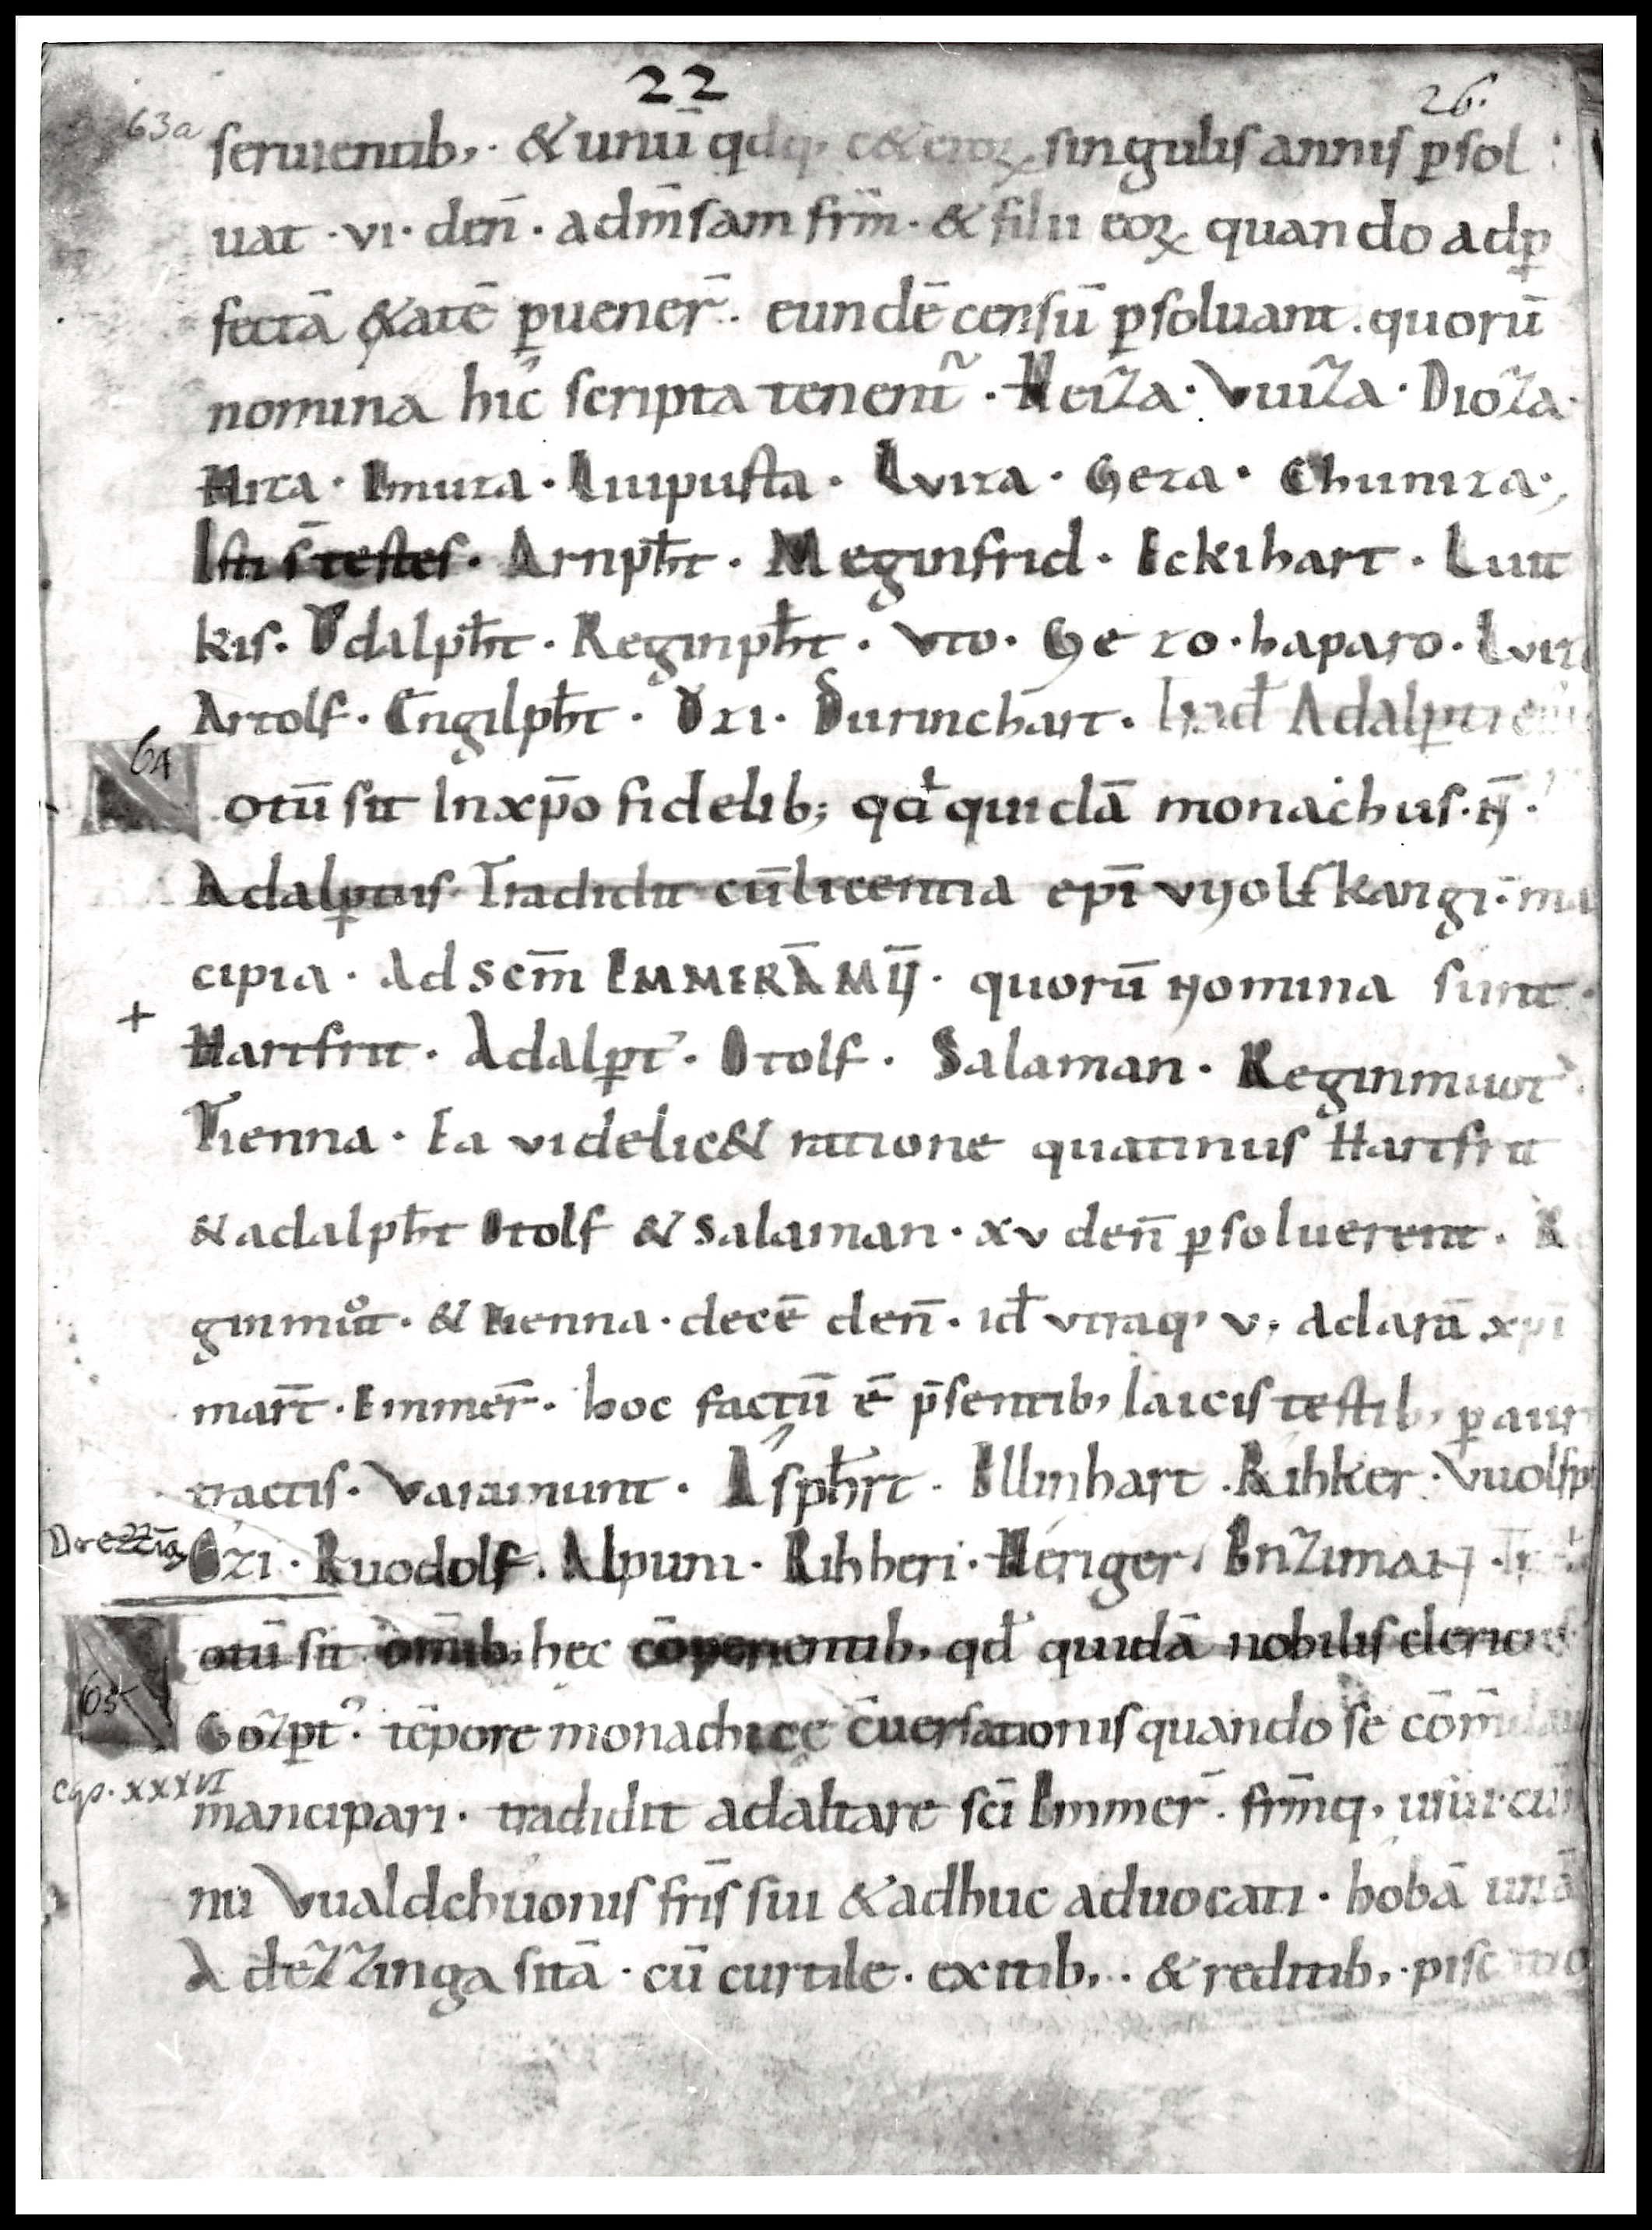 22
26.
63a
seruientib, · & unū singulis annis ꝑsol
uat · vi · deñ · ad m̄sam frm̄ · & filii eoꝝ quando ad ꝑ
fectā ætatē ꝑuener̄ · eundē censū ꝑsoluant · quorū
nomina hic scripta tenent̃ · Heiza · Vuiza · Dioza ·
Hita · Imuza · Liupusta · Lvita · Geza · Chuniza ·,
Isti s̄ testes · Arnpħt · Meginfrid · Eckihart · Liut
kis · Vdalpħt · Reginpħt · Vto · Gezo · haparo ·
Artolf · Engilpħt · Ozi · Durinchart · Trad̄
64
Notū sit In xp̄o fidelib; qd̄ quidā monachus · N̄ ·
Adalꝑtus Tradidit cū licentia ep̄i VVolfkangi · ma
cipia · Ad scm̄ EMMERĀMŪ · quorū Nomina sunt ·
+
Hartfrit · Adalꝑt · Otolf · Salaman · Reginmuot
Tienna · Ea videlic& ratione quatinus Hartfrit
& adalpħt Otolf & Salaman · xv deñ ꝑsoluerent · R
ginmůt · & Tienna · decē deñ · id̄ vtraq, v, Ad arā xp̄i
mar̄t · Emmer̄ · hoc factū ē p̄sentib, laicis testib, ꝑ aur
tractis · Varamunt · Aspħrt · Ellinhart · Rihker · Vuolfp
Drezzing
Ozi · Ruodolf · Alpuni · Rihheri · Heriger · Enziman ·
65
Notū sit om̄ib, hec cōperientib, qd̄ quidā nobilis clericus
Gozꝑt᾿ tēpore monachice c̄uersationis quando se
cap. XXXVI
mancipari · tradidit ad altare sc̄i Emmer̄ · frm̄q,
nu Vualdchuonis fr̄is sui & adhuc aduocati · hobā unā
A dezzinga sitā · cū curtile · exitib, · & reditib, ·